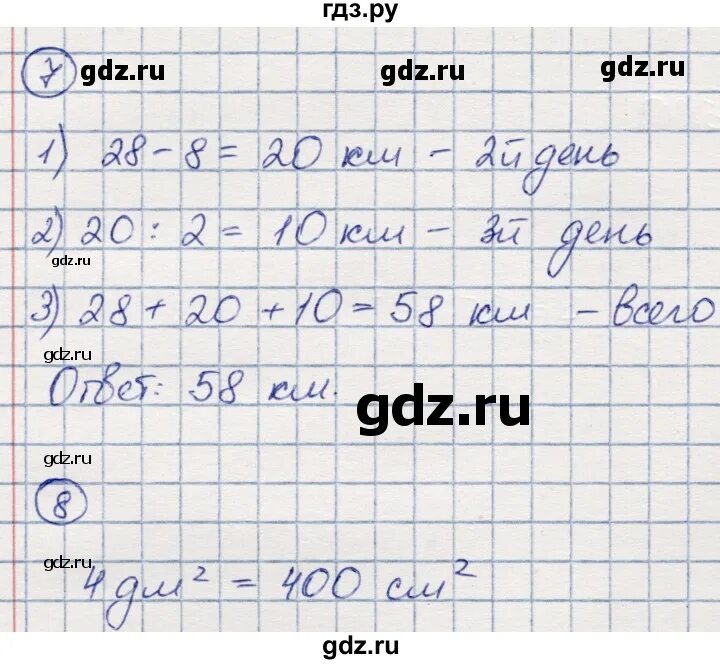 гдз.ру
7 gdz.ru gdz.ru gdz.ru
1) 28 - 8 = 20 км - 2й день
2) 20 : 2 = 10 км - 3й день
gdz.ru
3) 28 + 20 + 10 = 58 км - всего
gdz.ru
Ответ: 58 км.
gdz.ru
gdz.ru
8
gdz.ru
4 дм² = 400 см²
gdz.ru